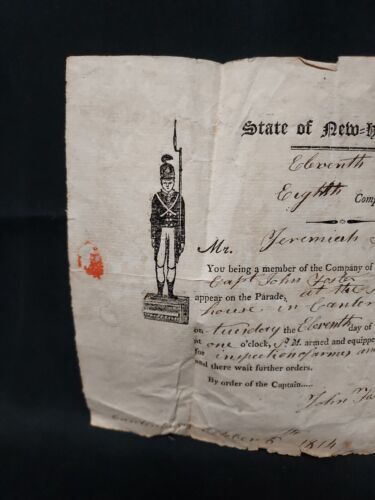 State of New-H
Eleventh
Eighth Comp
Mr. Jeremiah
You being a member of the Company of
Capt John Foster
appear on the Parade, at the
house in Canter
on tuesday the Eleventh day of
at one o'clock, P. M. armed and equippe
for inspection of armes and
and there wait further orders.
By order of the Captain.....
John
October 5th 1814